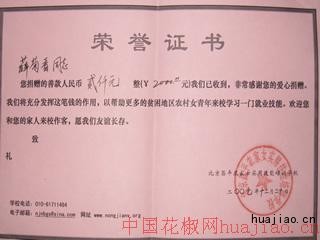 荣誉证书
薛菊香同志
您捐赠的善款人民币 贰仟元 整(¥ 2000.00元)我们已收到,非常感谢您的爱心捐赠。
我们将充分发挥这笔钱的作用,以帮助更多的贫困地区农村女青年来校学习一门就业技能。欢迎您
和您的家人来校作客,愿我们友谊长存。
致
礼
北京昌平农家女实用技能培训学校
二〇〇九年十二月二十日
学校电话:010-61711484
电子邮箱:njnbgs@sina.com 网址 www.nongjianv.org
中国花椒网huajiao.cn
huajiao.cn